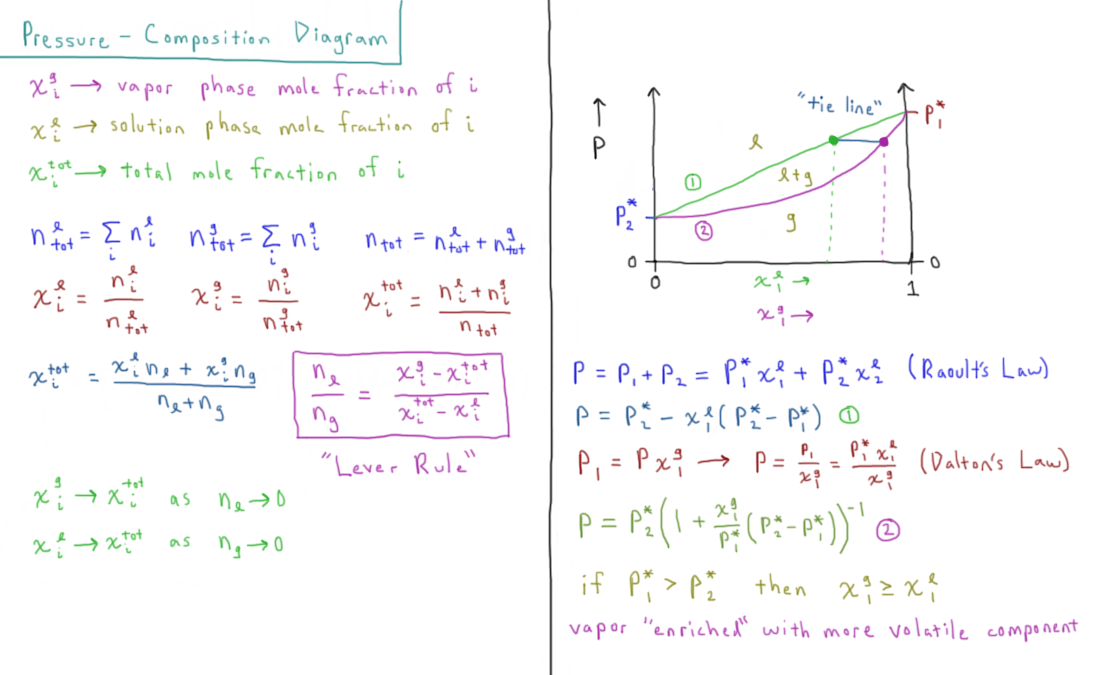 Pressure - Composition Diagram
x_i^g → vapor phase mole fraction of i
x_i^ℓ → solution phase mole fraction of i
x_i^tot → total mole fraction of i
n_tot^ℓ = Σ_i n_i^ℓ n_tot^g = Σ_i n_i^g n_tot = n_tot^ℓ + n_tot^g
x_i^ℓ = n_i^ℓ / n_tot^ℓ x_i^g = n_i^g / n_tot^g x_i^tot = (n_i^ℓ + n_i^g) / n_tot
x_i^tot = (x_i^ℓ n_ℓ + x_i^g n_g) / (n_ℓ + n_g) n_ℓ / n_g = (x_i^g - x_i^tot) / (x_i^tot - x_i^ℓ)
"Lever Rule"
x_i^g → x_i^tot as n_ℓ → 0
x_i^ℓ → x_i^tot as n_g → 0
"tie line"
↑ P
P_1^*
ℓ
① ℓ+g
P_2^*
② g
0 0
0 x_1^ℓ → 1
x_1^g →
P = P_1 + P_2 = P_1^* x_1^ℓ + P_2^* x_2^ℓ (Raoult's Law)
P = P_2^* - x_1^ℓ (P_2^* - P_1^*) ①
P_1 = P x_1^g → P = P_1 / x_1^g = P_1^* x_1^ℓ / x_1^g (Dalton's Law)
P = P_2^* (1 + x_1^g / P_1^* (P_2^* - P_1^*))^-1 ②
if P_1^* > P_2^* then x_1^g ≥ x_1^ℓ
vapor "enriched" with more volatile component